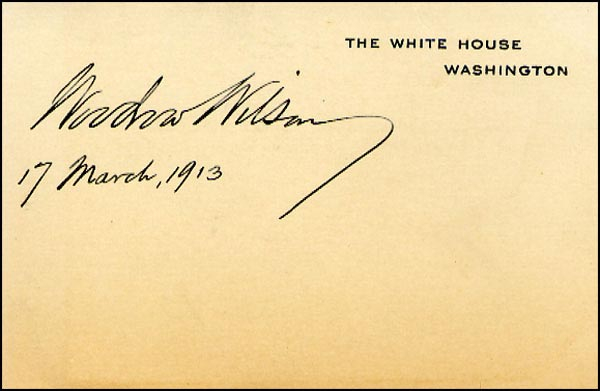 THE WHITE HOUSE
WASHINGTON
Woodrow Wilson
17 March, 1913